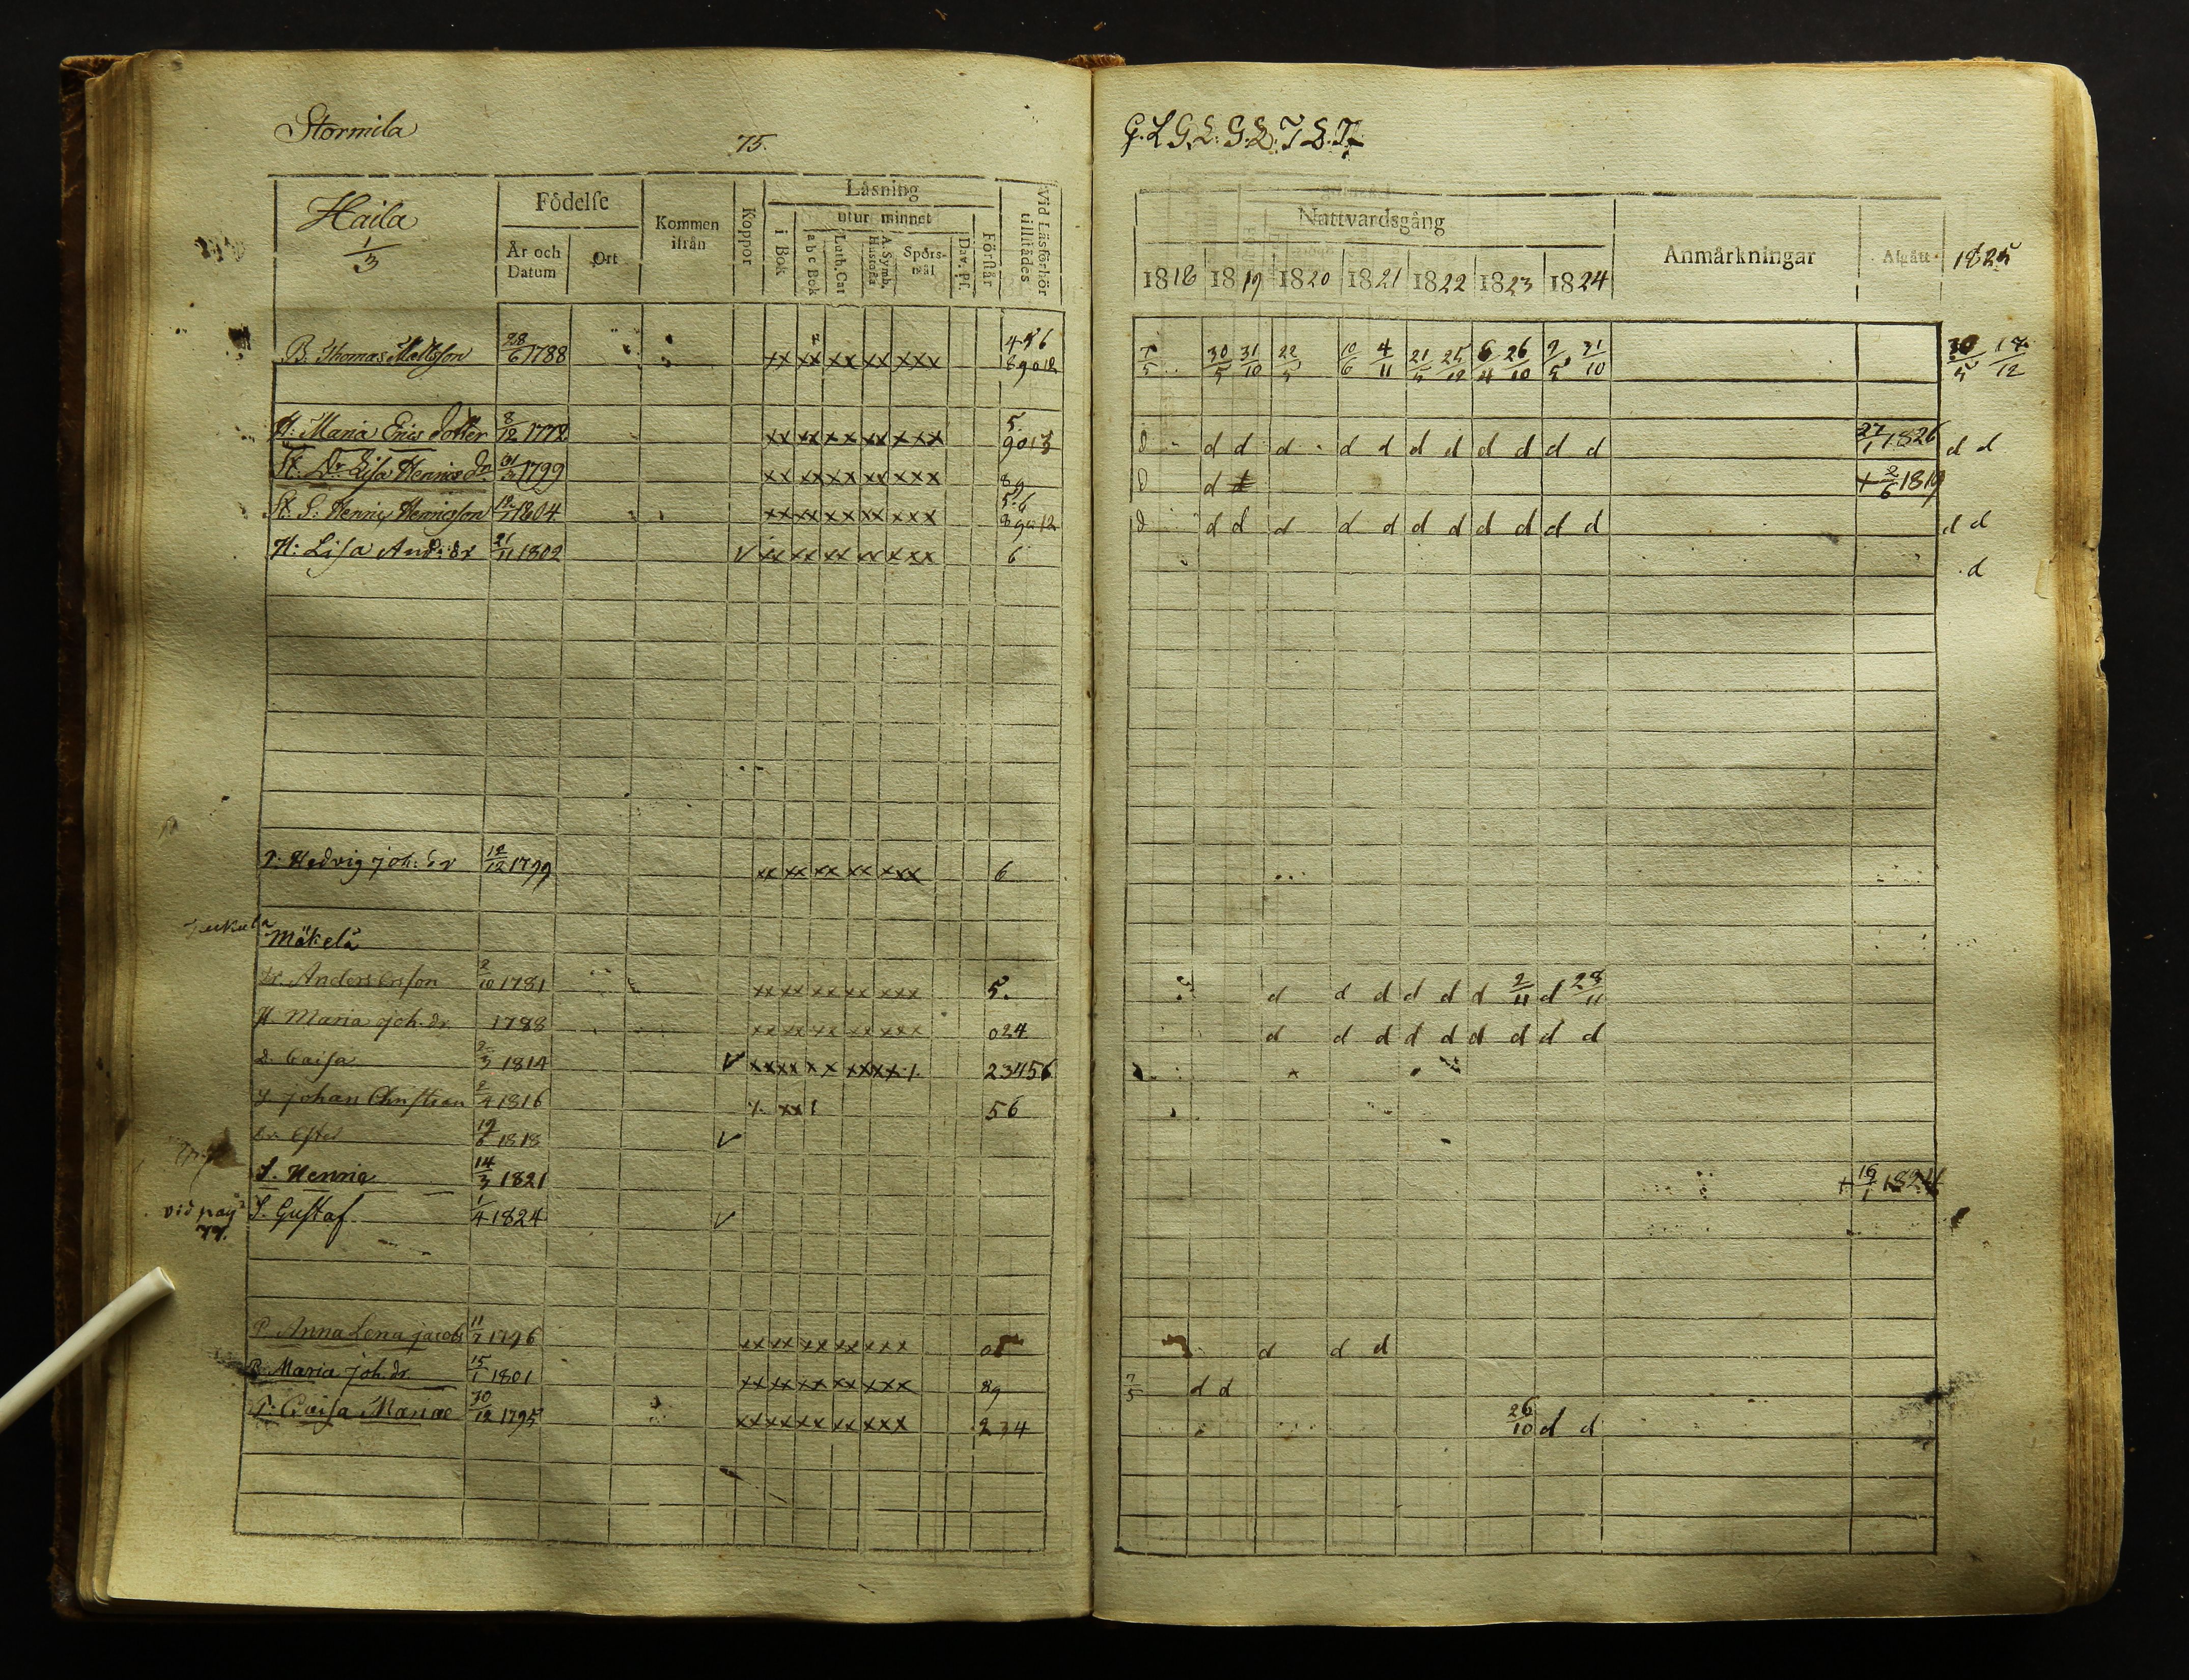 Stormila
75.
Haila
1/3
Födelse
År och Datum
Ort
Kommen ifrån
Koppor
Läsning
i Bok
utur minnet
a b c Bok
Luth. Cat
A. Symb. Hustafla
Spörs-mål
Dav. Ps.
Förstår
Vid Läsförhör tillstädes
B. Thomas Mattsson 28/6 1788 xx xx xx xx xxx 456 89012
H: Maria Erics dotter 8/12 1772 xx xx xx xx xxx 5. 9013
St. Dr. Lisa Henrics dr. 1799 xx xx xx xx xxx 89
St. S. Henric Henricsson 1804 xx xx xx xx xxx 5.6 89012
H: Lisa And: dr 21/11 1802 V xx xx xx xx xxx 6
P: Hedvig Joh: dr 12/12 1799 xx xx xx xx xxx 6
Mäkelä
Dr. Anders Ersson 2/10 1781 xx xx xx xx xxx 5.
H. Maria Joh. dr. 1788 xx xx xx xx xxx 024
D. Caisa 2/3 1814 V xx xx x x xx xx 23456
S. Johan Christian 2/4 1816 xx 56
Ester 19/6 1818 V
S. Henric 14/3 1821
vid pag 77.
S. Gustaf 1/4 1824 V
P. Anna Lena Jacobs 11/7 1796 xx xx xx xx xxx
P. Maria Joh. dr. 15/1 1801 xx xx xx xx xxx 89
P. Caisa 30/12 1795 xx xx xx xx xxx 234
G. L. G. L. G. L. T L. T.
Nattvardsgång
Anmärkningar
Afgått
1818 1819 1820 1821 1822 1823 1824
1825
7/5 30/5 31/10 22/5 10/6 4/11 21/5 25/12 6/4 26/10 9/5 31/10 30/5 18/12
d d d d d d d d d d d d 27/1 1826 d d
d d + 2/6 1819
d d d d d d d d d d d d d d
d
d d d d d d 2/11 d 28/11
d d d d d d d d d
+ 16/1 1824
d d d
7/5 d d
26/10 d d